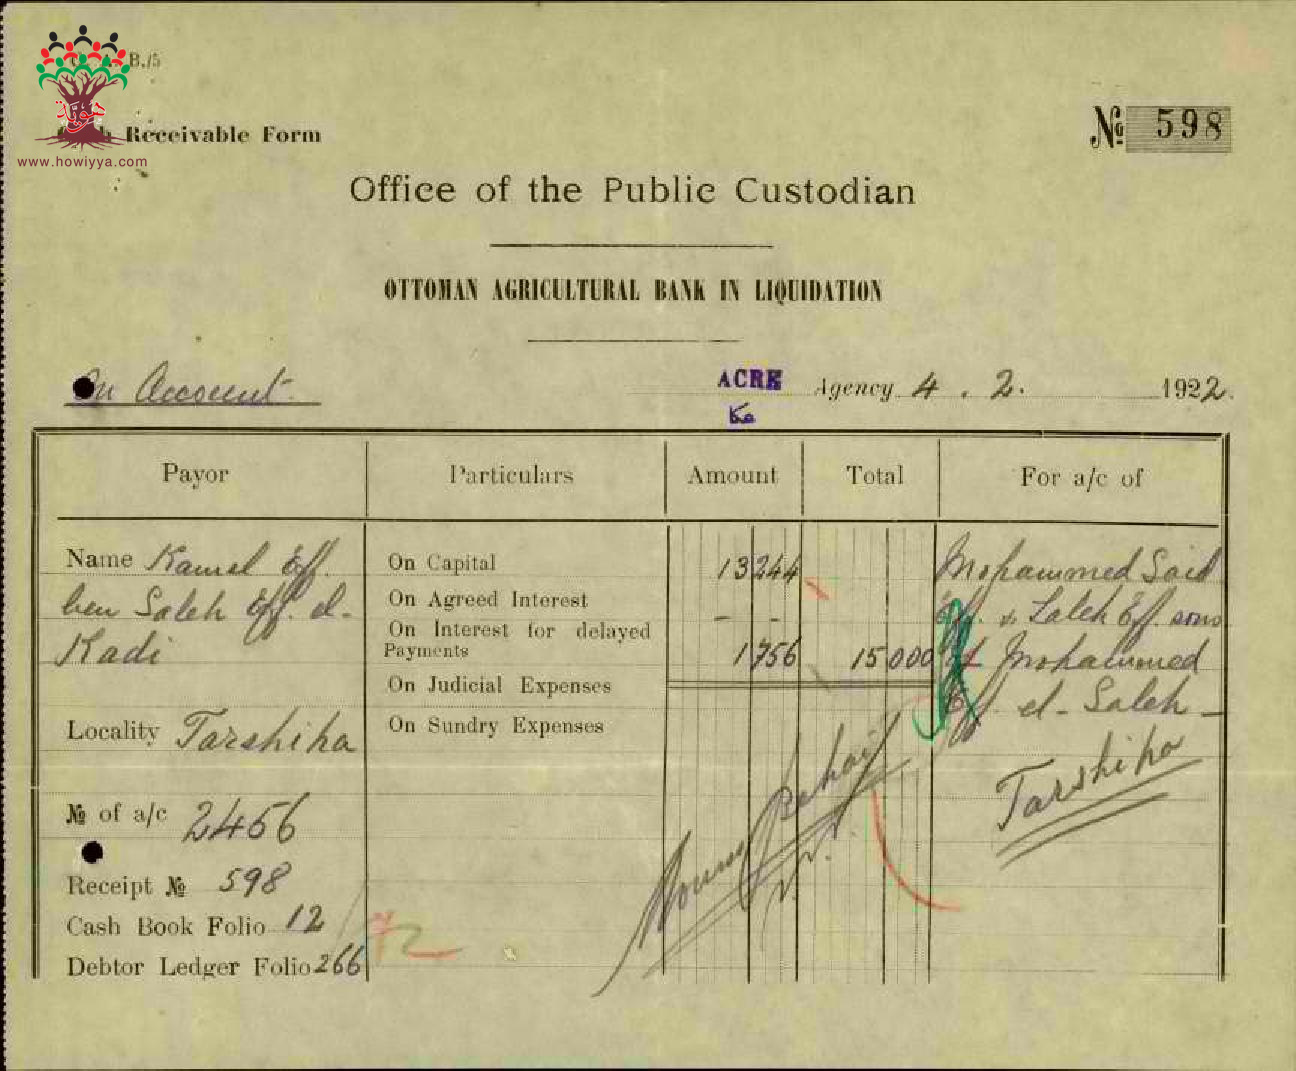 B./5
هوية
www.howiyya.com
Receivable Form
№ 598
Office of the Public Custodian
OTTOMAN AGRICULTURAL BANK IN LIQUIDATION
On Account
ACRE Agency 4 . 2. 1922.
Payor Particulars Amount Total For a/c of
Name Kamel Eff. On Capital 13 244 Mohammed Said
ben Saleh Eff. el- On Agreed Interest - - Eff. & Saleh Eff. sons
Kadi On Interest for delayed Payments 1 756 15 000 of Mohammed
On Judicial Expenses Eff. el-Saleh -
Locality Tarshiha On Sundry Expenses Tarshiha
№ of a/c 2456
Receipt № 598
Cash Book Folio 12
Debtor Ledger Folio 266